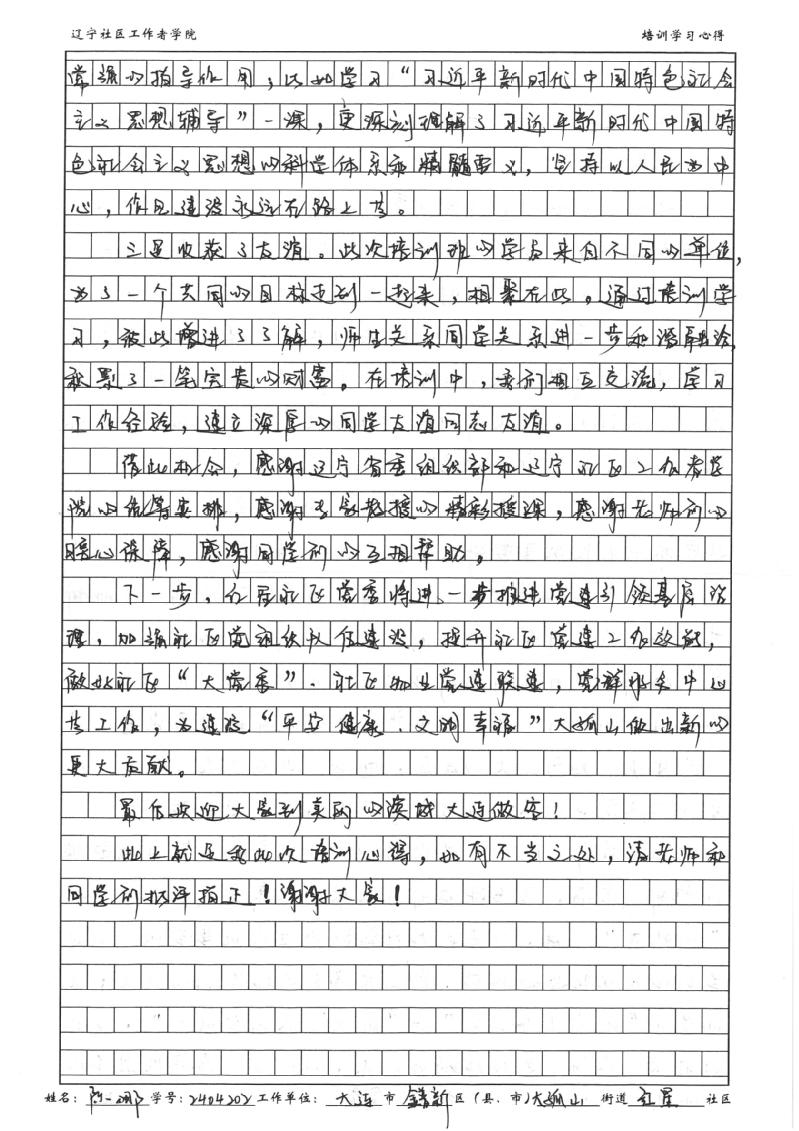 辽宁社区工作者学院 培训学习心得
常强的指导作用，比如学习“习近平新时代中国特色社会
主义思想辅导”一课，更深刻理解了习近平新时代中国特
色社会主义思想的科学体系和精髓要义，坚持以人民为中
心，作风建设永远在路上等。
三是收获了友谊。此次培训班的学员来自不同的单位，
为了一个共同的目标走到一起来，相聚在此，通过培训学
习，彼此增进了了解，师生关系同学关系进一步和谐融洽，
积累了一笔宝贵的财富。在培训中，我们相互交流，学习
工作经验，建立深厚的同学友谊同志友谊。
借此机会，感谢辽宁省委组织部和辽宁社区工作者学
院的统筹安排，感谢专家教授的精彩授课，感谢老师们的
暖心保障，感谢同学们的互相帮助。
下一步，红星社区党委将进一步推进党建引领基层治
理，加强社区党组织队伍建设，提升社区党建工作效能，
做好社区“大党委”、社区物业党建联建，党群服务中心
等工作，为建设“平安健康、文明幸福”大孤山做出新的
更大贡献。
最后欢迎大家到美丽的滨城大连做客！
以上就是我此次培训心得，如有不当之处，请老师和
同学们批评指正！谢谢大家！
姓名： 学号：2404202 工作单位：大连 市 金普新 区（县、市）大孤山 街道 红星 社区